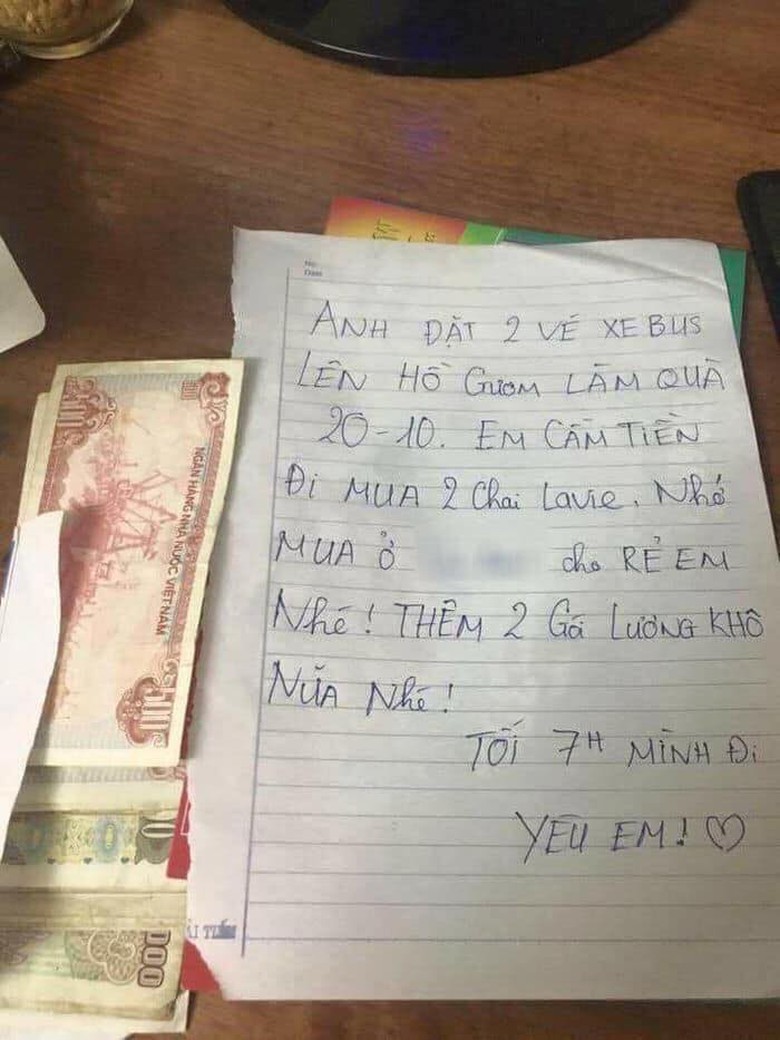 ANH ĐẶT 2 VÉ XE BUS
LÊN HỒ GƯƠM LÀM QUÀ
20-10. EM CẦM TIỀN
ĐI MUA 2 Chai Lavie. Nhớ
MUA Ở cho RẺ EM
Nhé! THÊM 2 Gói LƯƠNG KHÔ
NỮA Nhé!
TỐI 7H MÌNH ĐI
YÊU EM! ♡
NGÂN HÀNG NHÀ NƯỚC VIỆT NAM
500
500
No:
Date: